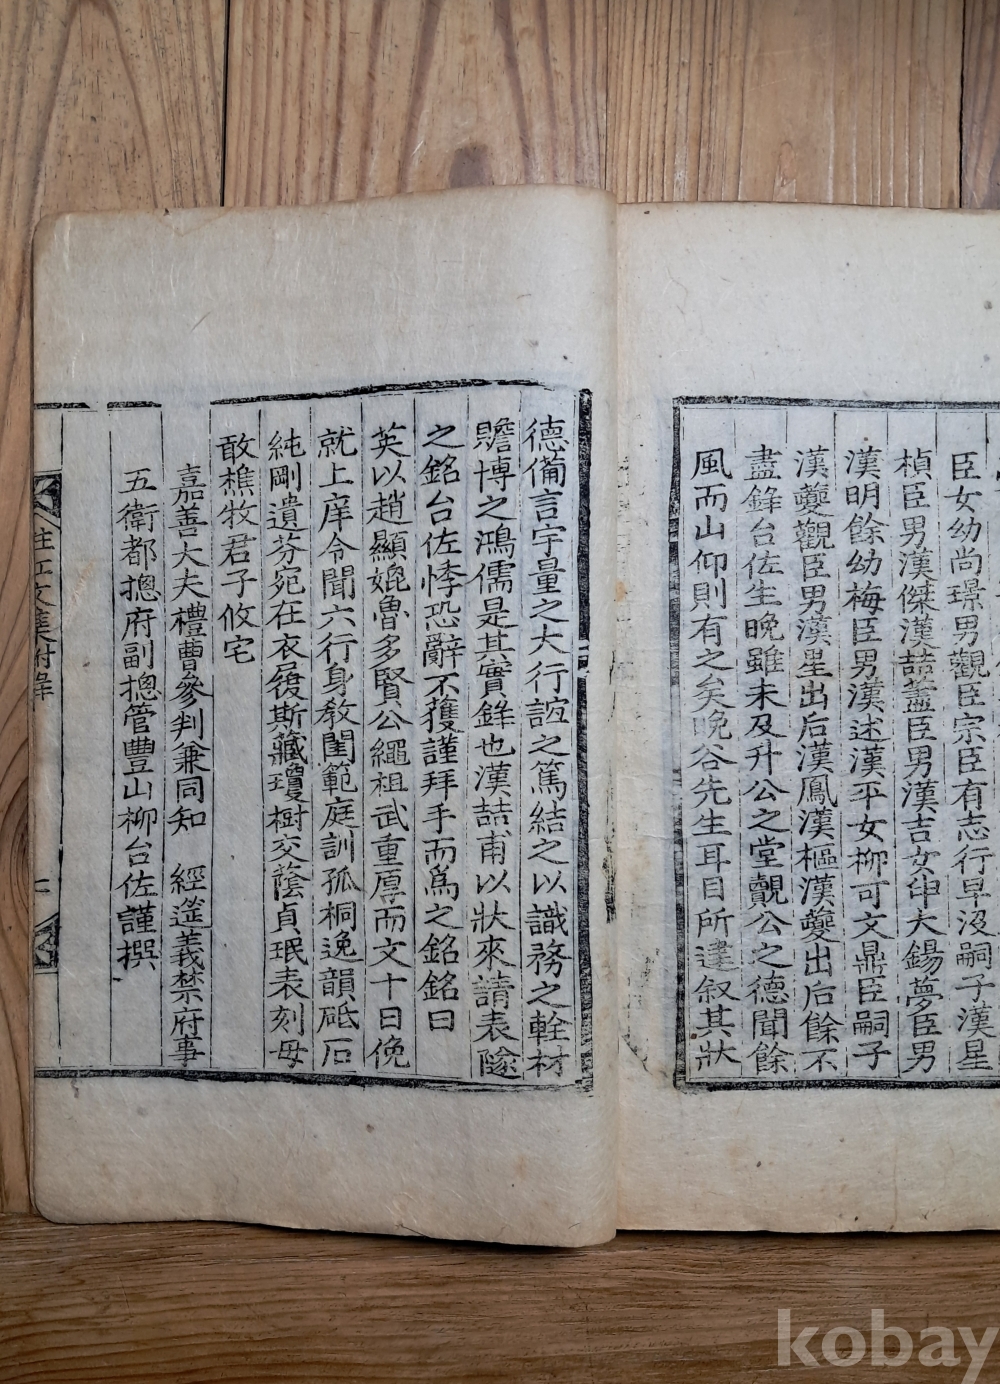 臣女幼尚璟男觀臣宗臣有志行早沒嗣子漢星
楨臣男漢傑漢喆藎臣男漢吉女申大錫夢臣男
漢明餘幼梅臣男漢述漢平女柳可文鼎臣嗣子
漢夔觀臣男漢星出后漢鳳漢樞漢夔出后餘不
盡錄台佐生晩雖未及升公之堂覿公之德聞餘
風而山仰則有之矣晩谷先生耳目所逮叙其狀
德備言宇量之大行誼之篤結之以識務之輇材
贍博之鴻儒是其實錄也漢喆甫以狀來請表隧
之銘台佐悸恐辭不獲謹拜手而爲之銘銘曰
英以趙顯媲魯多賢公繩祖武重厚而文十日俛
就上庠令聞六行身敎閨範庭訓孤桐逸韻砥石
純剛遺芬宛在衣履斯藏瓊樹交蔭貞珉表刻毋
敢樵牧君子攸宅
嘉善大夫禮曹參判兼同知 經筵義禁府事
五衛都摠府副摠管豐山柳台佐謹撰
文集附
kobay